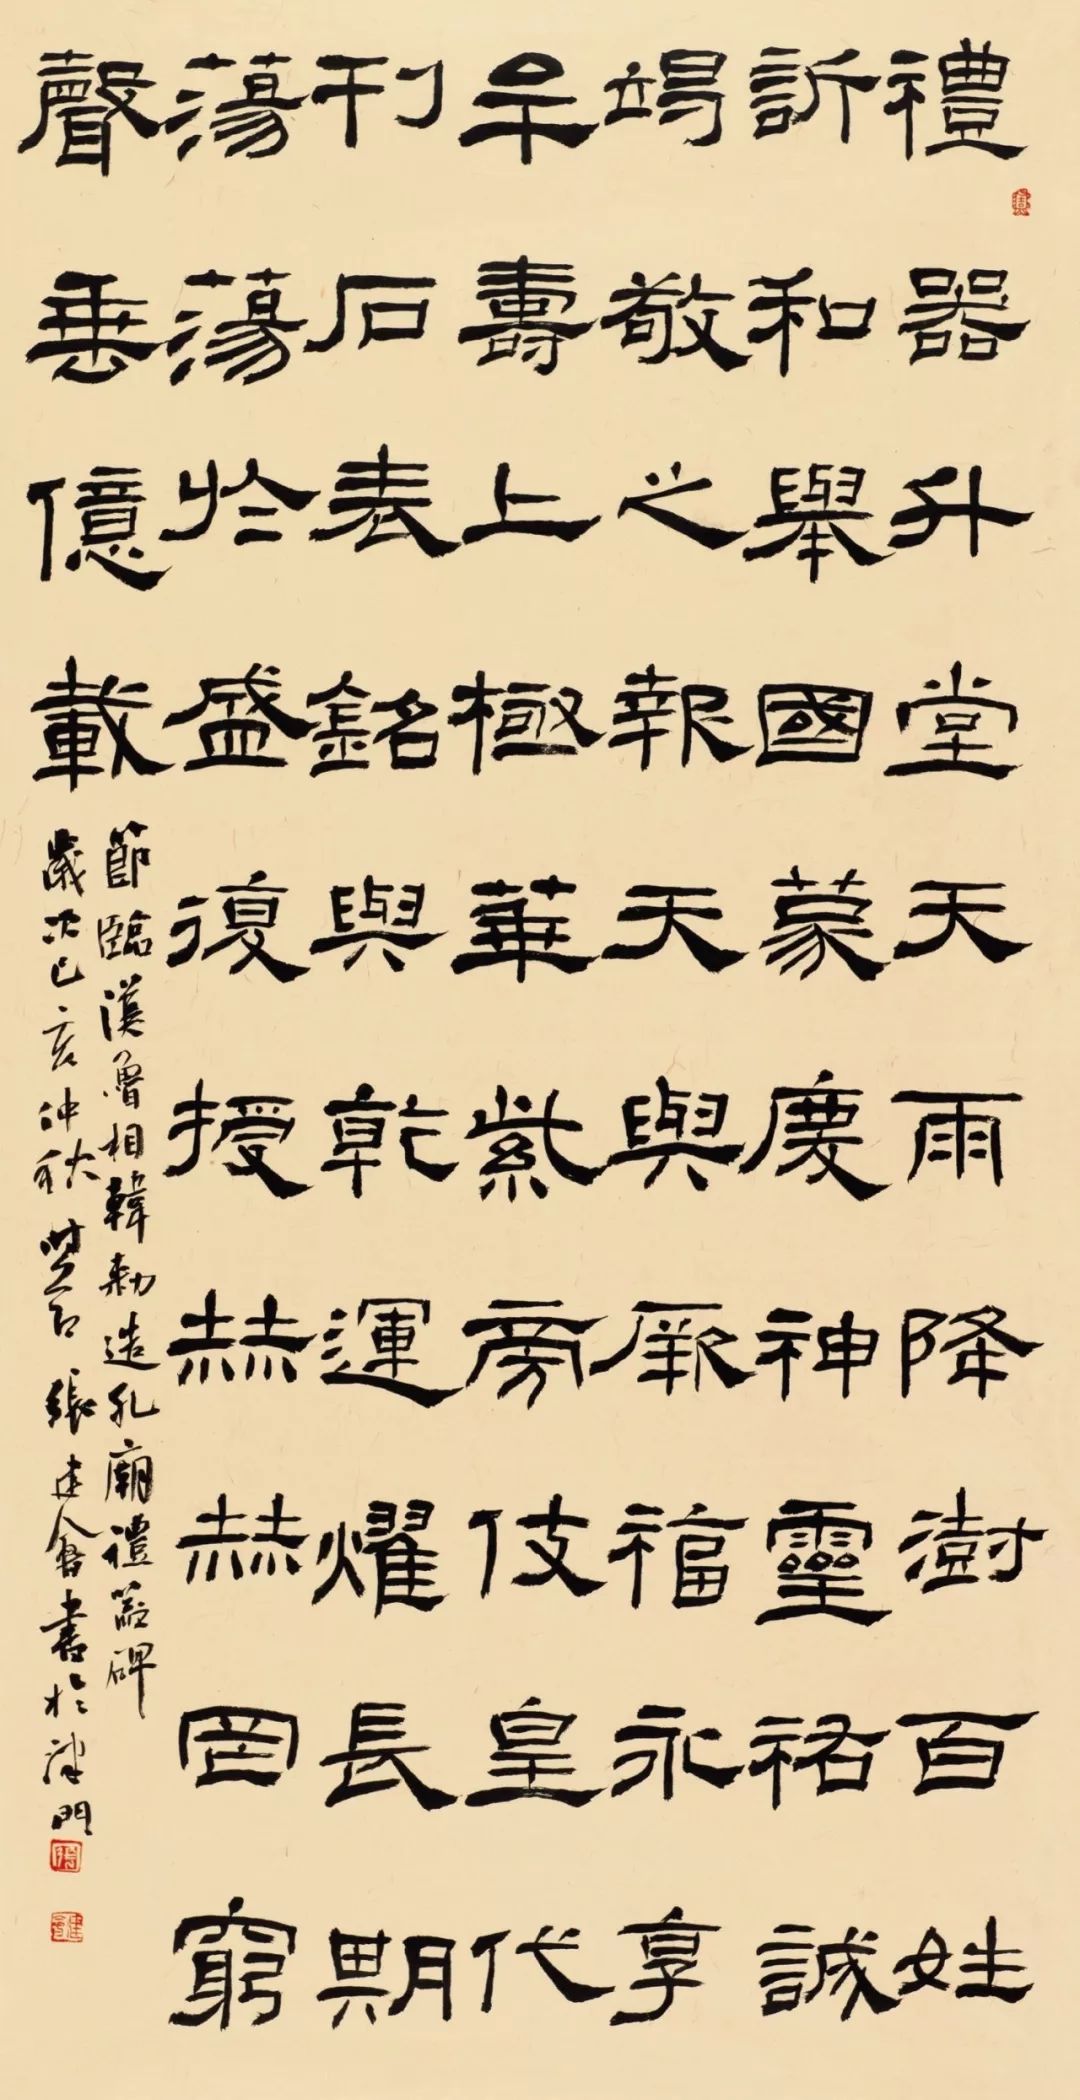 禮器升堂天雨降澍百姓
訢和舉國蒙慶神靈祐誠
竭敬之報天與厥福永享
牟壽上極華紫旁伎皇代
刊石表銘與乾運燿長期
蕩蕩於盛復授赫赫罔窮
聲垂億載
節臨漢魯相韓勅造孔廟禮器碑
歲次己亥仲秋張建會書於津門